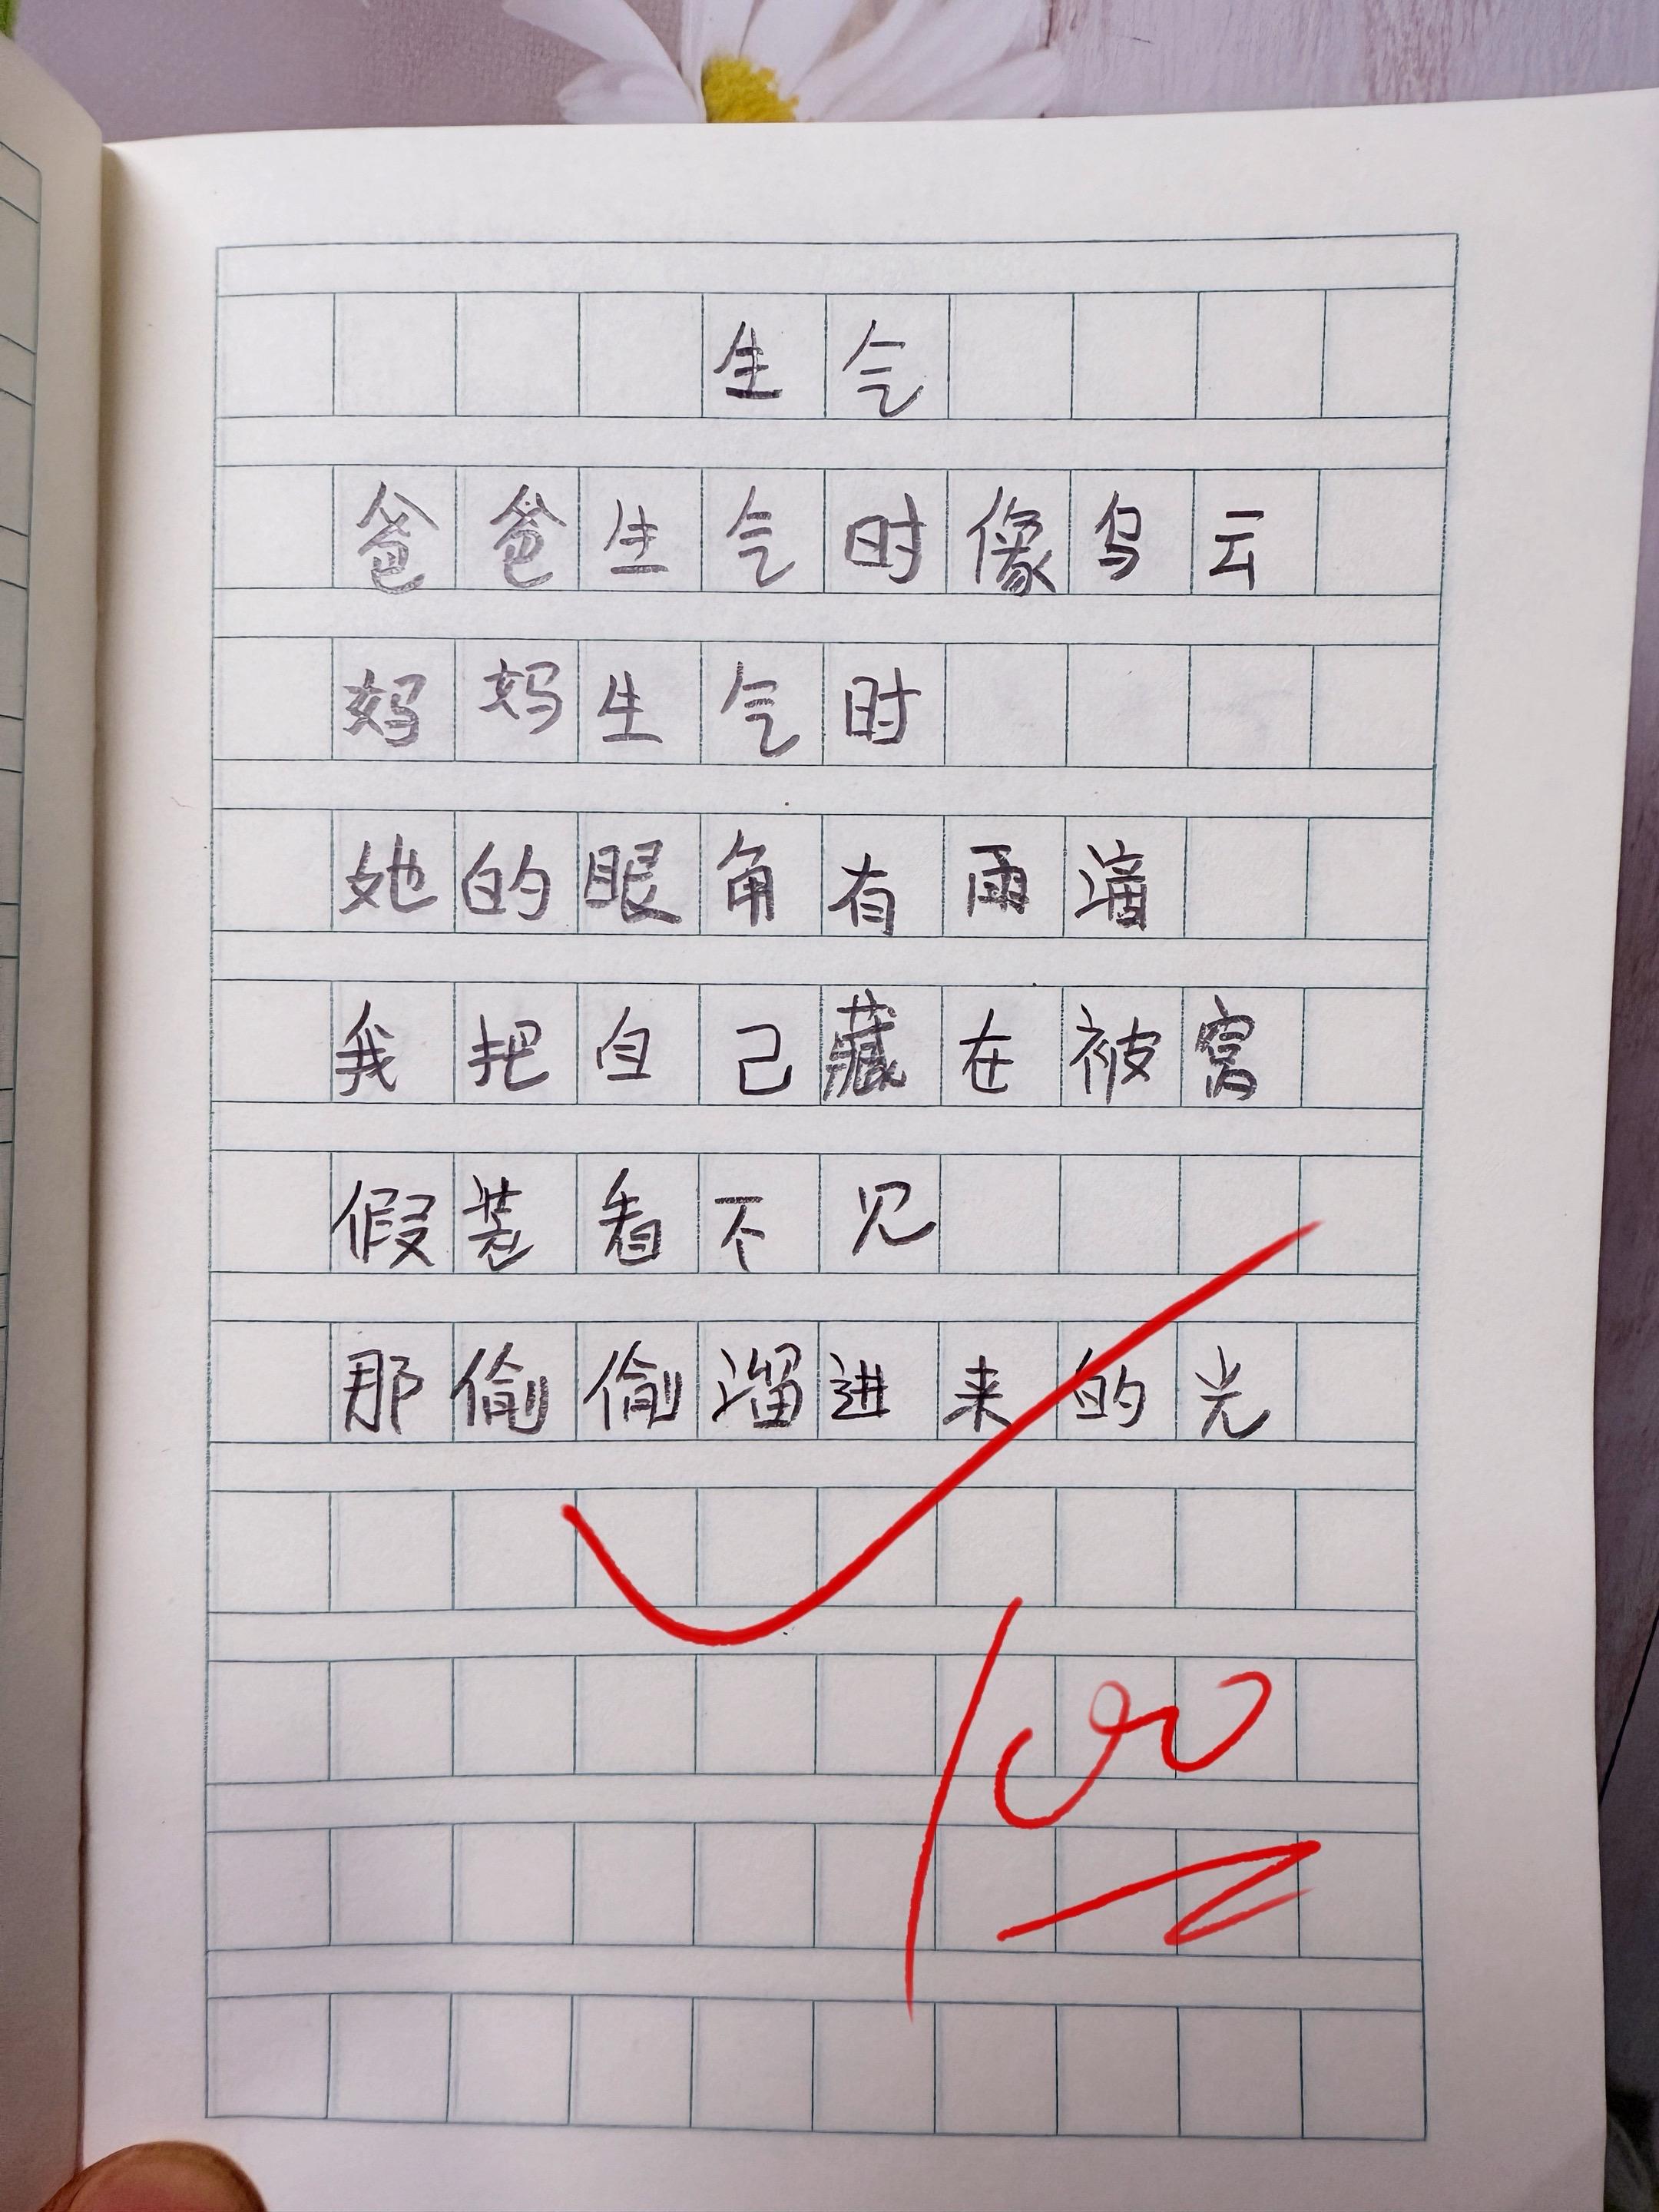 生气
爸爸生气时像乌云
妈妈生气时
她的眼角有雨滴
我把自己藏在被窝
假装看不见
那偷偷溜进来的光
100